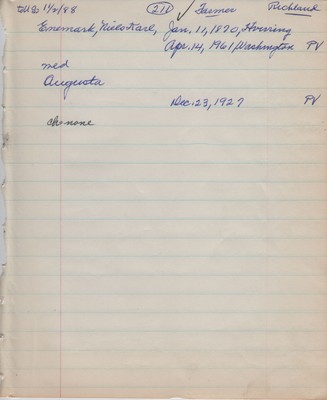 to US 11/4/88 (211) ✓ Farmer Richland
Enemark, Niels Karl, Jan. 11, 1870, Horning
Apr. 14, 1961, Washington PV
med
Augusta
Dec. 23, 1927 PV
ch: none